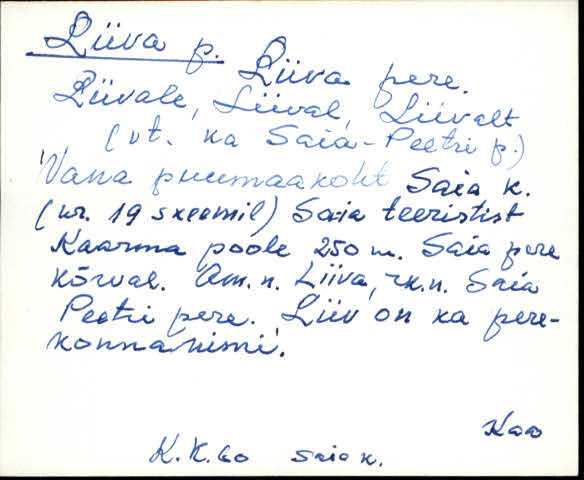 Liiva p.
Liiva pere.
Liivale, Liival, Liivalt
(vt. ka Saia-Peetri p.)
Vana puumaakoht Saia k.
(nr. 19 skeemil) Saia teeristist
Kaarma poole 250 m. Saia pere
kõrval. Am.n. Liiva, rk.n. Saia
Peetri pere. Liiv on ka pere-
konnanimi.
Kaa
K.K.60 Saia k.